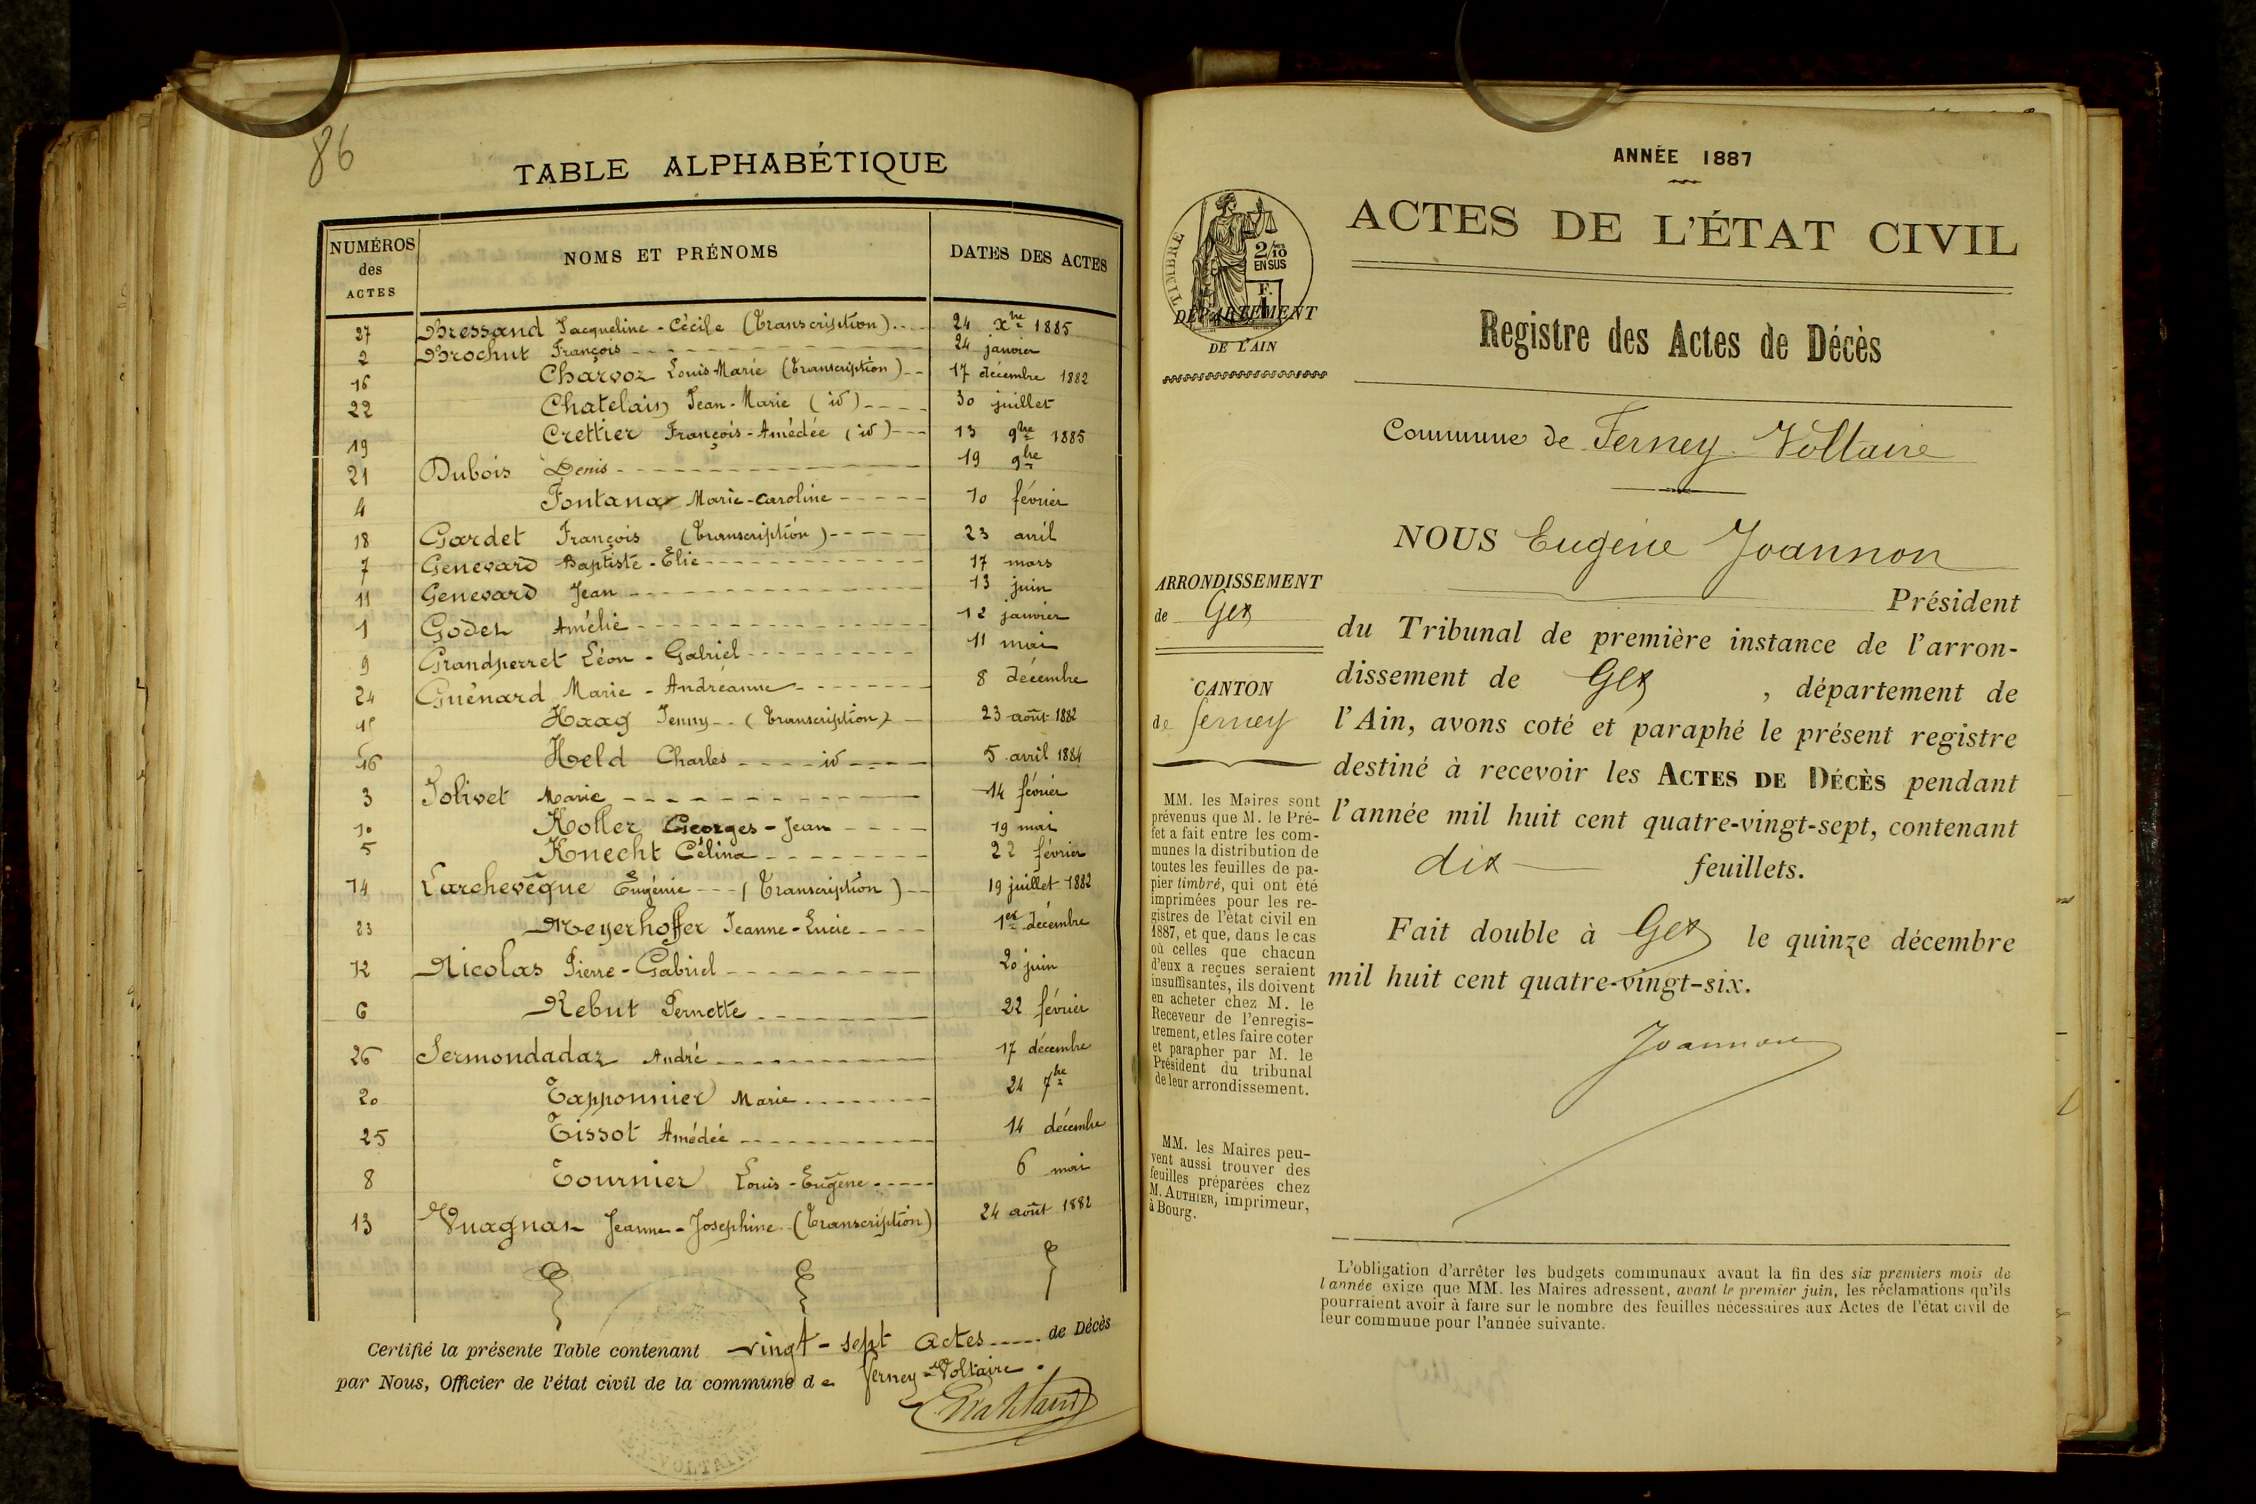 86
TABLE ALPHABÉTIQUE
NUMÉROS des ACTES NOMS ET PRÉNOMS DATES DES ACTES
27 Bressand Jacqueline-Cécile (Transcription) 24 Xbre 1885
2 Brochut François 24 janvier
16 Charvoz Louis-Marie (Transcription) 17 décembre 1882
22 Chatelain Jean-Marie (id) 30 juillet
19 Crettier François-Amédée (id) 13 9bre 1885
21 Dubois Denis 19 9bre
4 Fontana Marie-Caroline 10 février
18 Gardet François (Transcription) 23 avril
7 Genevard Baptiste-Elie 17 mars
11 Genevard Jean 13 juin
1 Godet Amélie 12 janvier
9 Grandperret Léon-Gabriel 11 mai
24 Guénard Marie-Andréanne 8 décembre
15 Haag Jenny (Transcription) 23 août 1882
16 Held Charles id 5 avril 1884
3 Jolivet Marie 14 février
10 Koller Georges-Jean 19 mai
5 Knecht Célina 22 février
14 Larchevêque Eugénie (Transcription) 19 juillet 1882
23 Meyerhoffer Jeanne-Lucie 1er décembre
12 Nicolas Pierre-Gabriel 20 juin
6 Rebut Pernette 22 février
26 Sermondadaz André 17 décembre
20 Tapponnier Marie 24 7bre
25 Tissot Amédée 14 décembre
8 Tournier Louis-Eugène 6 mai
13 Vuagnat Jeanne-Josephine (Transcription) 24 août 1882
Certifié la présente Table contenant vingt-sept actes de Décès
par Nous, Officier de l'état civil de la commune de Ferney-Voltaire.
ANNÉE 1887
ACTES DE L'ÉTAT CIVIL
TIMBRE
2/10
EN SUS
F.
1
DÉPARTEMENT
DE L'AIN
Registre des Actes de Décès
Commune de Ferney-Voltaire
NOUS Eugène Joannon
Président
du Tribunal de première instance de l'arron-
dissement de Gex, département de
l'Ain, avons coté et paraphé le présent registre
destiné à recevoir les ACTES DE DÉCÈS pendant
l'année mil huit cent quatre-vingt-sept, contenant
dix feuillets.
Fait double à Gex le quinze décembre
mil huit cent quatre-vingt-six.
Joannon
ARRONDISSEMENT
de Gex
CANTON
de Ferney
MM. les Maires sont
prévenus que M. le Pré-
fet a fait entre les com-
munes la distribution de
toutes les feuilles de pa-
pier timbré, qui ont été
imprimées pour les re-
gistres de l'état civil en
1887, et que, dans le cas
où celles que chacun
d'eux a reçues seraient
insuffisantes, ils doivent
en acheter chez M. le
Receveur de l'enregis-
trement, et les faire coter
et parapher par M. le
Président du tribunal
de leur arrondissement.
MM. les Maires peu-
vent aussi trouver des
feuilles préparées chez
M. AUTHIER, imprimeur,
à Bourg.
L'obligation d'arrêter les budgets communaux avant la fin des six premiers mois de
l'année exige que MM. les Maires adressent, avant le premier juin, les réclamations qu'ils
pourraient avoir à faire sur le nombre des feuilles nécessaires aux Actes de l'état civil de
leur commune pour l'année suivante.